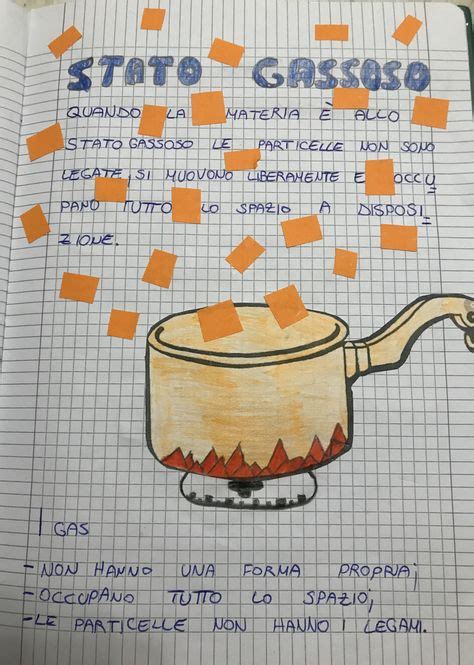 STATO GASSOSO
QUANDO LA MATERIA È ALLO
STATO GASSOSO LE PARTICELLE NON SONO
LEGATE, SI MUOVONO LIBERAMENTE E OCCU
PANO TUTTO LO SPAZIO A DISPOSI
ZIONE.
I GAS
- NON HANNO UNA FORMA PROPRIA;
- OCCUPANO TUTTO LO SPAZIO;
- LE PARTICELLE NON HANNO I LEGAMI.